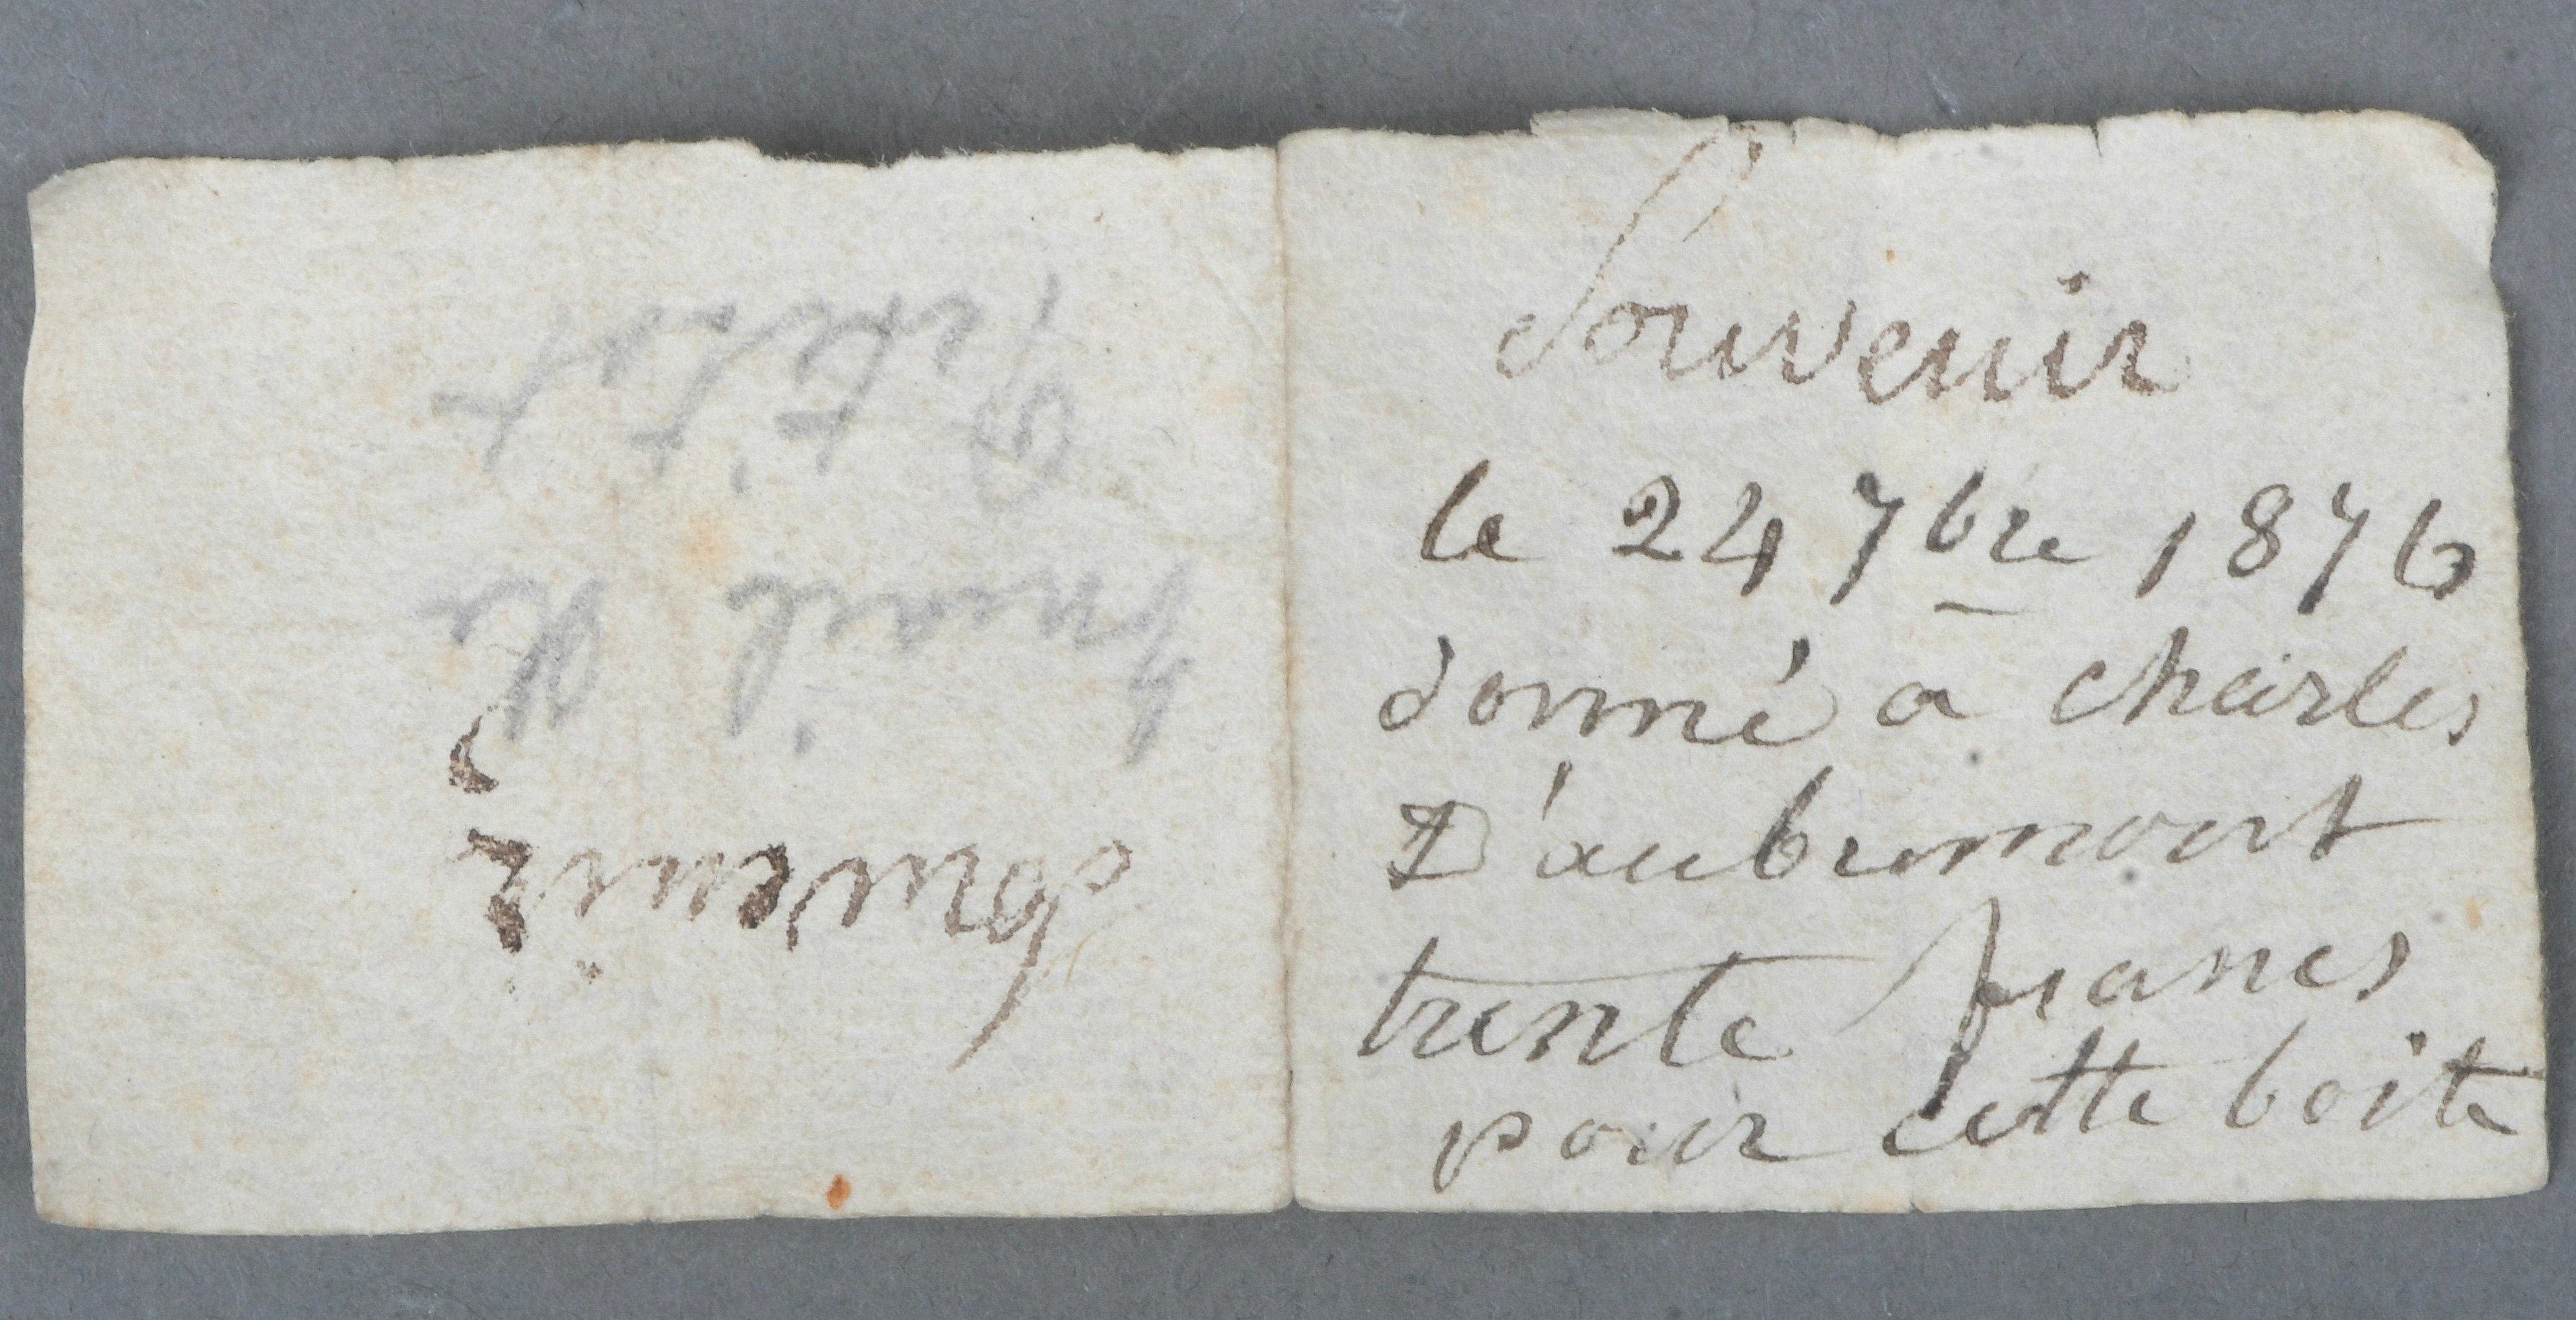 Souvenir
Email de
Petitot
Souvenir
le 24 7bre 1876
donné a charles
D'aubremont
trente francs
pour cette boite